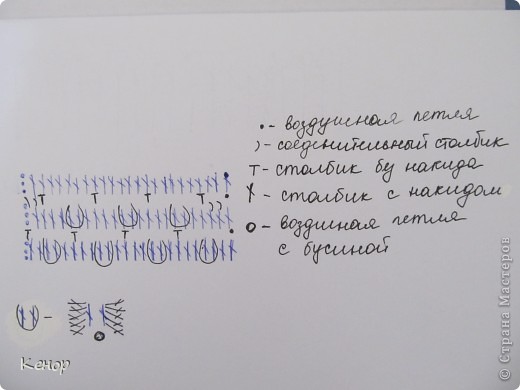 • - воздушная петля
) - соеденительный столбик
Т - столбик бу накида
Х - столбик с накидом
о - воздшная петля
с бусиной
Кенор
© Страна Мастеров